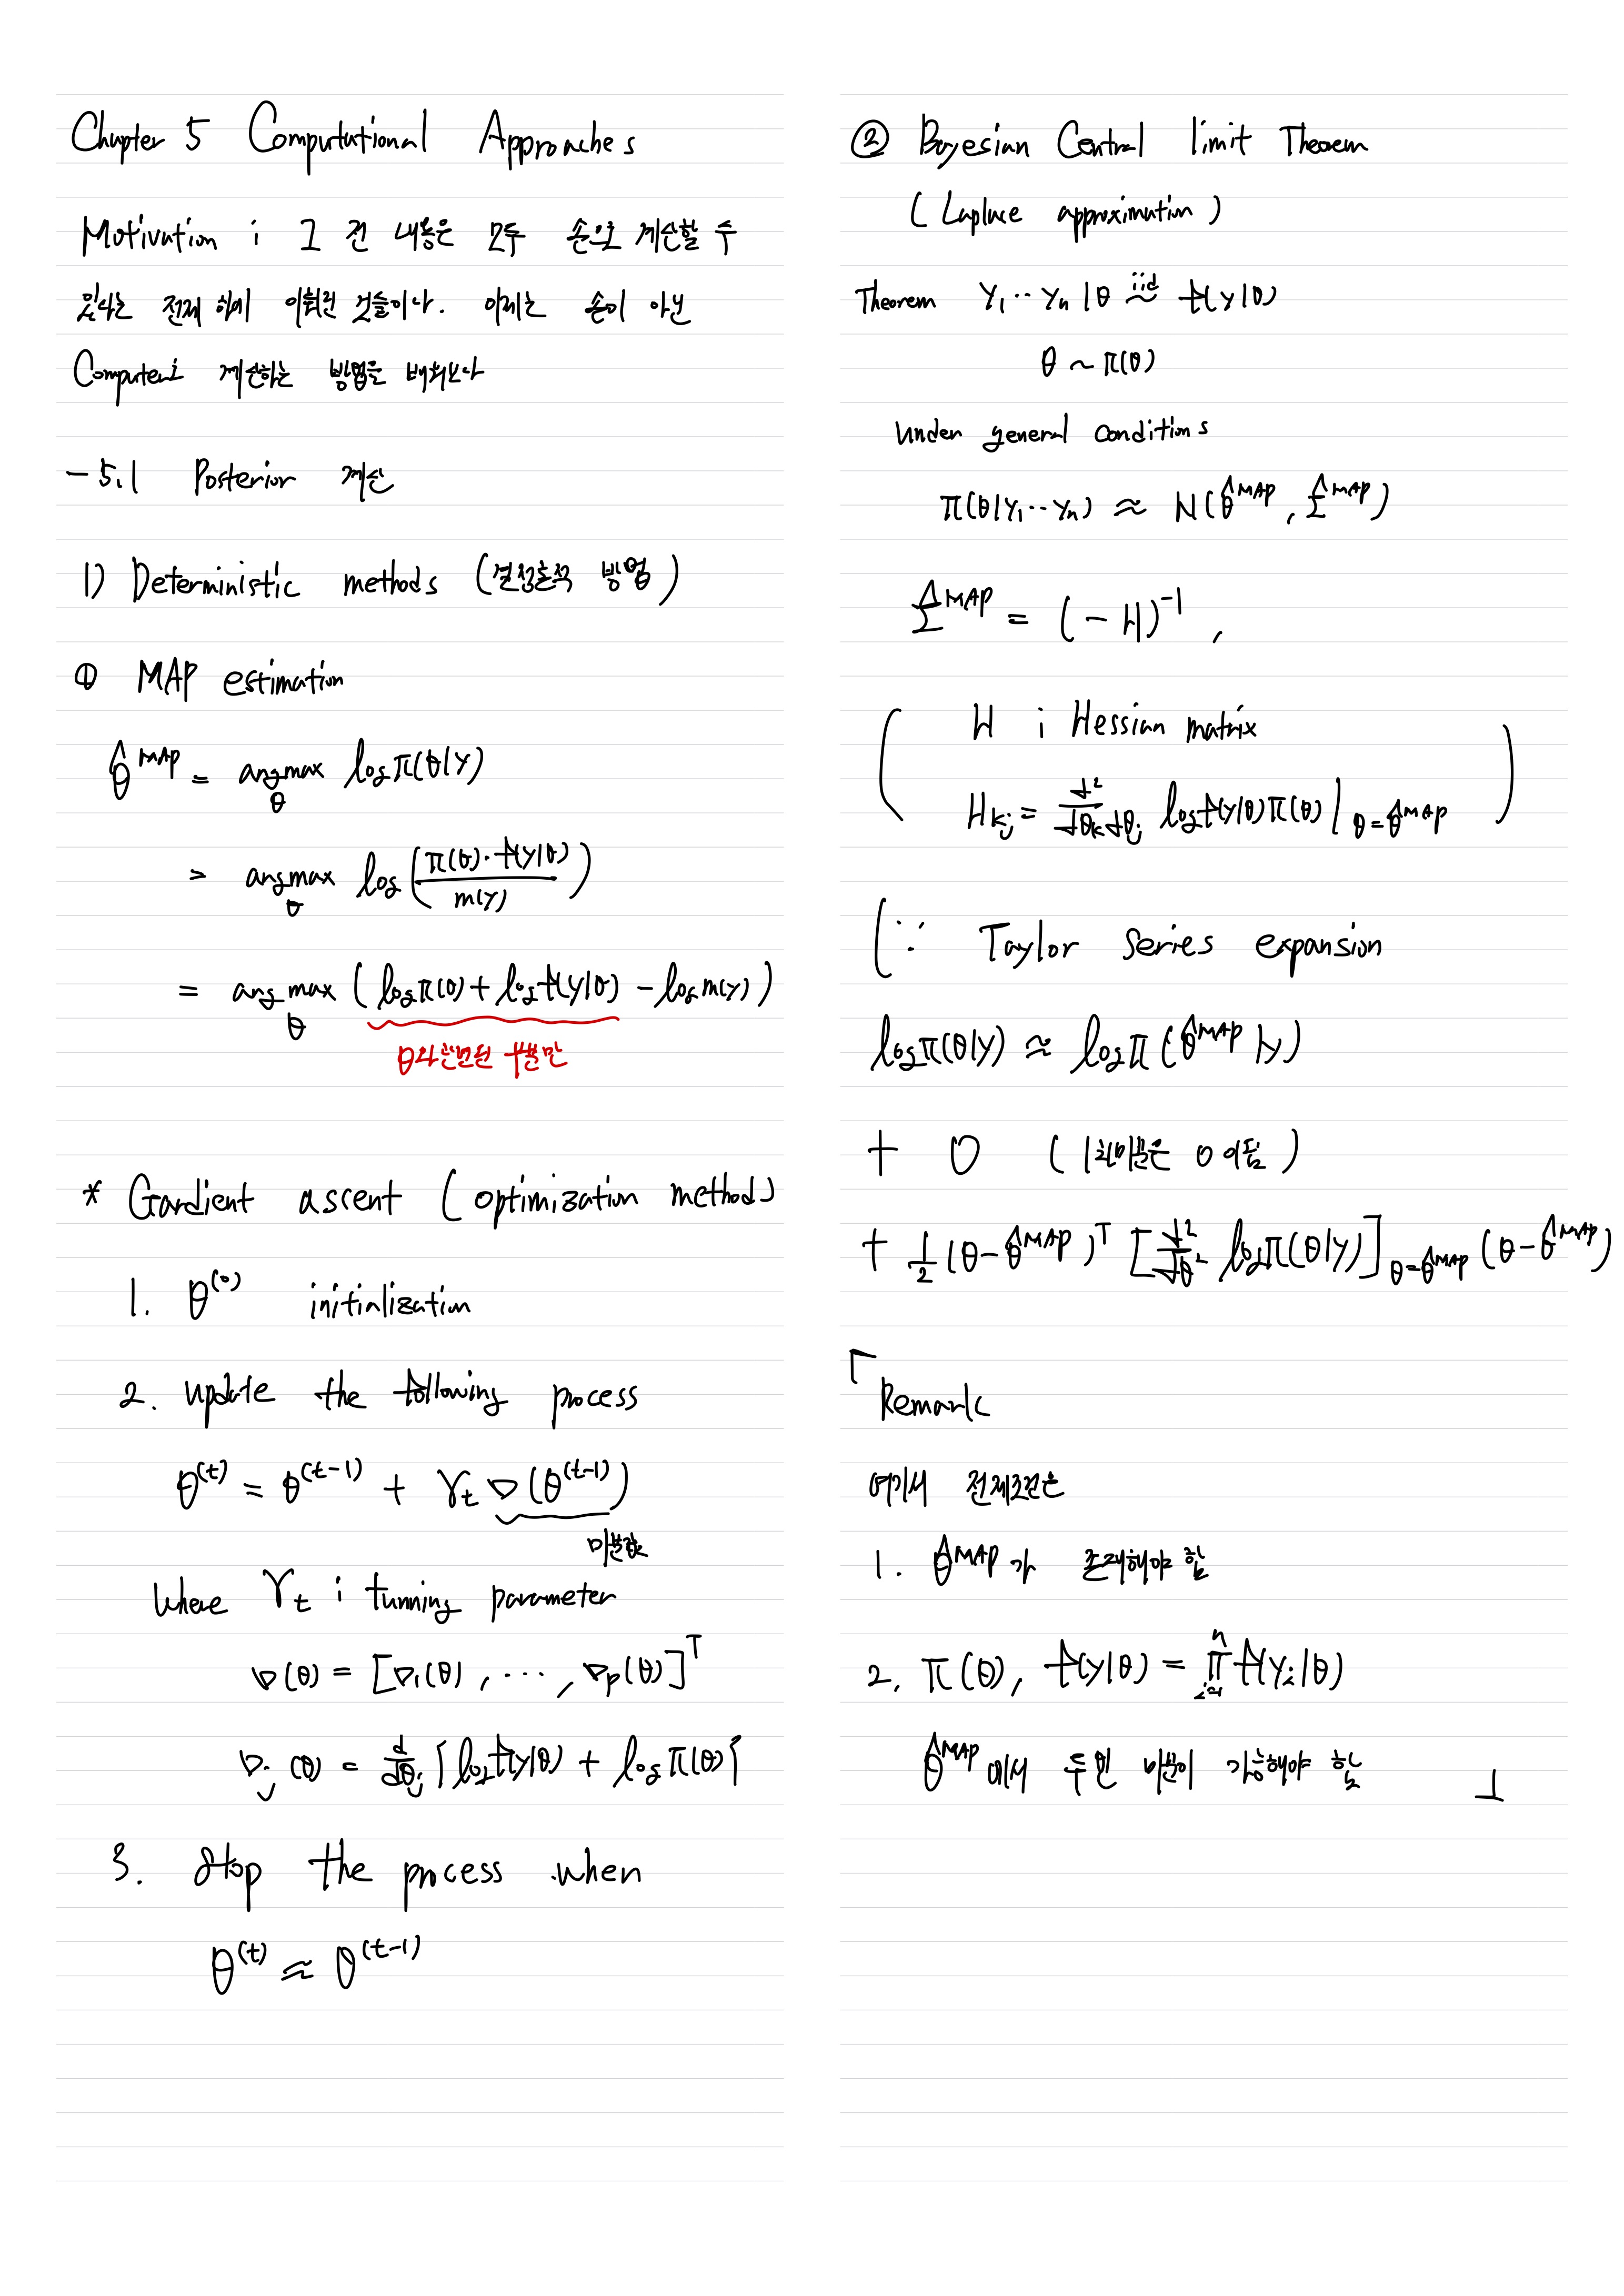 Chapter 5 Computational Approaches
Motivation ; 그 전 내용은 모두 손으로 계산할 수
있다는 전제 하에 이뤄진 것들이다. 이제는 손이 아닌
Computer로 계산하는 방법을 배워보자
- 5.1 Posterior 계산
1) Deterministic methods (결정론적 방법)
① MAP estimation
θ̂^MAP = argmax_θ log π(θ|y)
= argmax_θ log (π(θ)·f(y|θ) / m(y))
= argmax_θ (log π(θ) + log f(y|θ) - log m(y))
θ와 관련된 부분만
* Gardient ascent (optimization method)
1. θ^(0) initialization
2. update the following process
θ^(t) = θ^(t-1) + γ_t ∇(θ^(t-1))
미분값
where γ_t ; tunning parameter
∇(θ) = [∇_1(θ), ..., ∇_p(θ)]^T
∇_j(θ) = d/dθ_j {log f(y|θ) + log π(θ)}
3. Stop the process when
θ^(t) ≈ θ^(t-1)
② Bayesian Central limit Theorem
(Laplace approximation)
Theorem y_1 ... y_n | θ ~iid f(y|θ)
θ ~ π(θ)
under general conditions
π(θ|y_1 ... y_n) ≈ N(θ̂^MAP, Σ̂^MAP)
Σ̂^MAP = (-H)^-1 ,
( H ; Hessian matrix
H_kj = d²/dθ_k dθ_j log f(y|θ)π(θ) |_θ=θ̂^MAP )
(∵ Taylor Series expansion
log π(θ|y) ≈ log π(θ̂^MAP|y)
+ 0 (1차미분은 0 이됨)
+ 1/2 (θ-θ̂^MAP)^T [d²/dθ² log π(θ|y)]_θ=θ̂^MAP (θ-θ̂^MAP)
「Remark
여기서 전제조건은
1. θ̂^MAP가 존재해야 함
2. π(θ), f(y|θ) = ∏_{i=1}^n f(y_i|θ)
θ̂^MAP에서 두번 미분이 가능해야 함 」